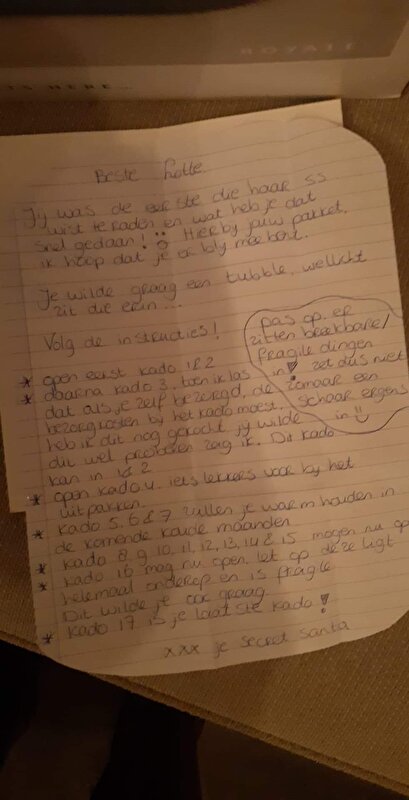 ROYALE
HERE...
Beste Lotte
Jij was de eerste die haar SS
wist te raden en wat heb je dat
snel gedaan! Hierbij jouw pakket,
ik hoop dat je er blij mee bent.
Je wilde graag een tubble, wellicht
zit die erin...
Volg de instructies!
pas op, er
zitten breekbare/
fragile dingen
in! zet dus niet
zomaar een
schaar ergens
in
* open eerst kado 1&2
* daarna kado 3, toen ik las
dat als je zelf bezorgd, de
bezorgkosten bij het kado moest,
heb ik dit nog gekocht, jij wilde
dit wel proberen zag ik. Dit kado
kan in 1&2
* open kado 4, iets lekkers voor bij het
uitpakken.
* Kado 5, 6 & 7 zullen je warm houden in
de komende koude maanden
* Kado 8, 9, 10, 11, 12, 13, 14 & 15 mogen nu op
* Kado 16 mag nu open, let op deze ligt
helemaal onderop en is fragile
Dit wilde je ook graag.
* Kado 17 is je laatste kado!
xxx je secret santa